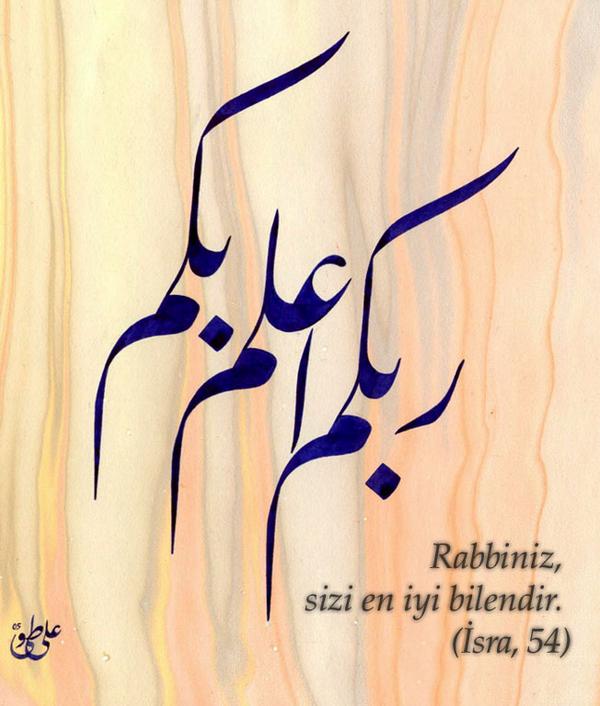 ربكم اعلم بكم
Rabbiniz,
sizi en iyi bilendir.
(İsra, 54)